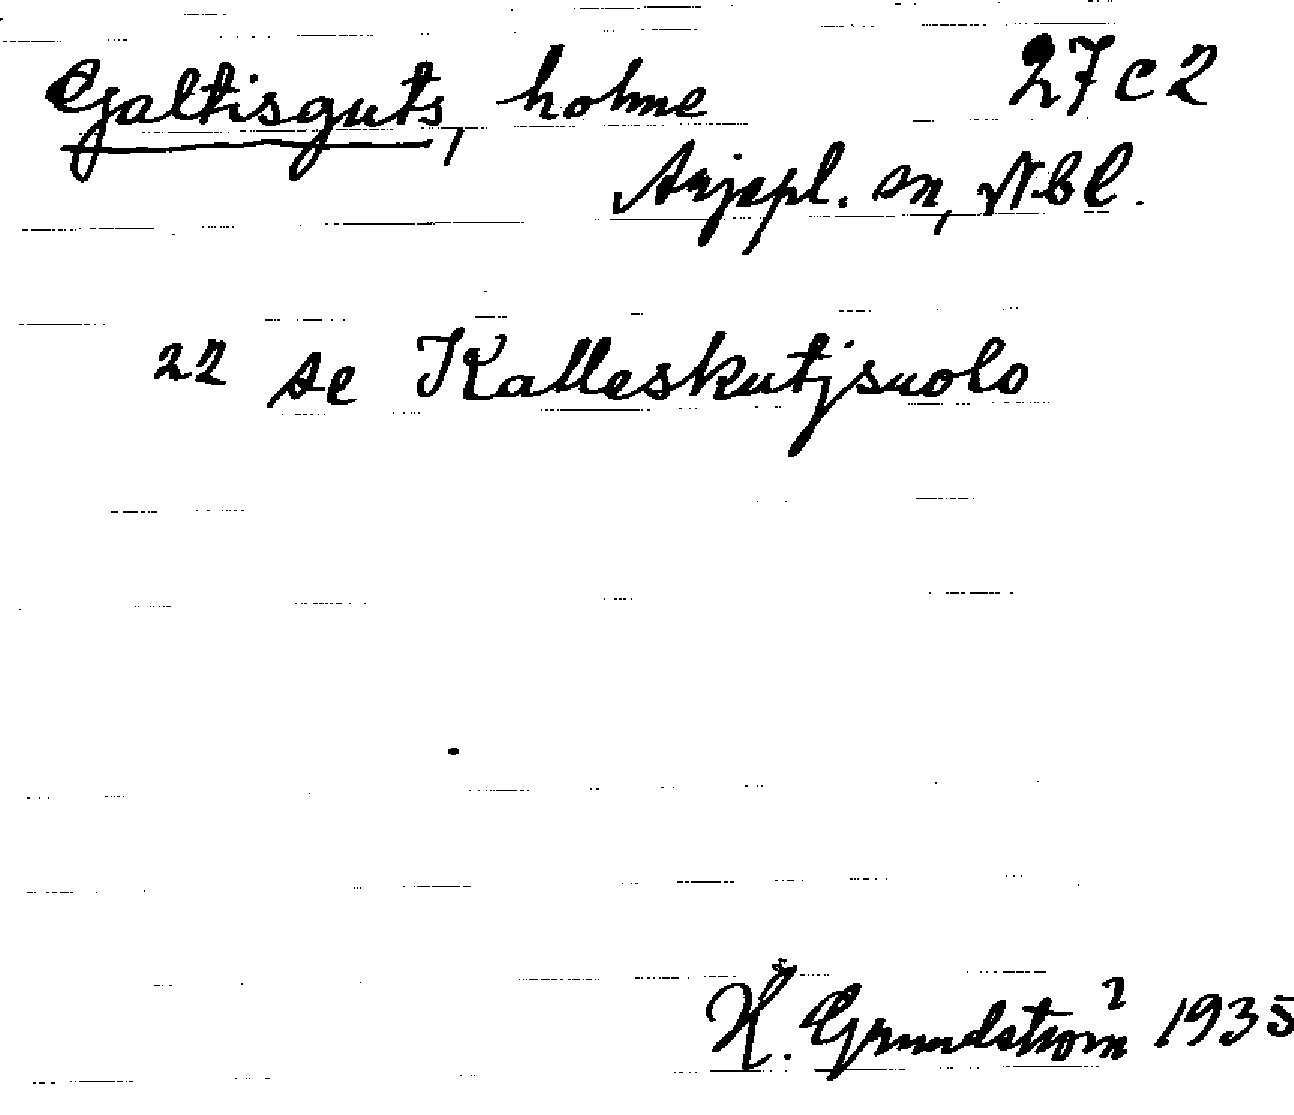 Galtisguts, holme 27c2
Arjepl. sn, Nbl.
22 se Kalleskutjsuolo
H. Grundström 1935